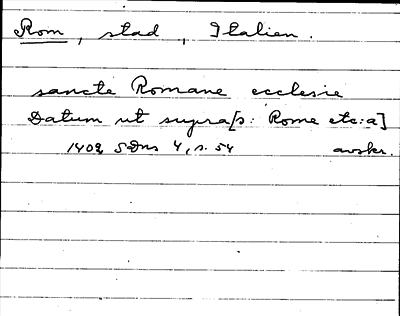 Rom, stad, Italien.
sancte Romane ecclesie
Datum ut supra[ɔ: Rome etc:a]
1402 SDns 4, s. 54 avskr.